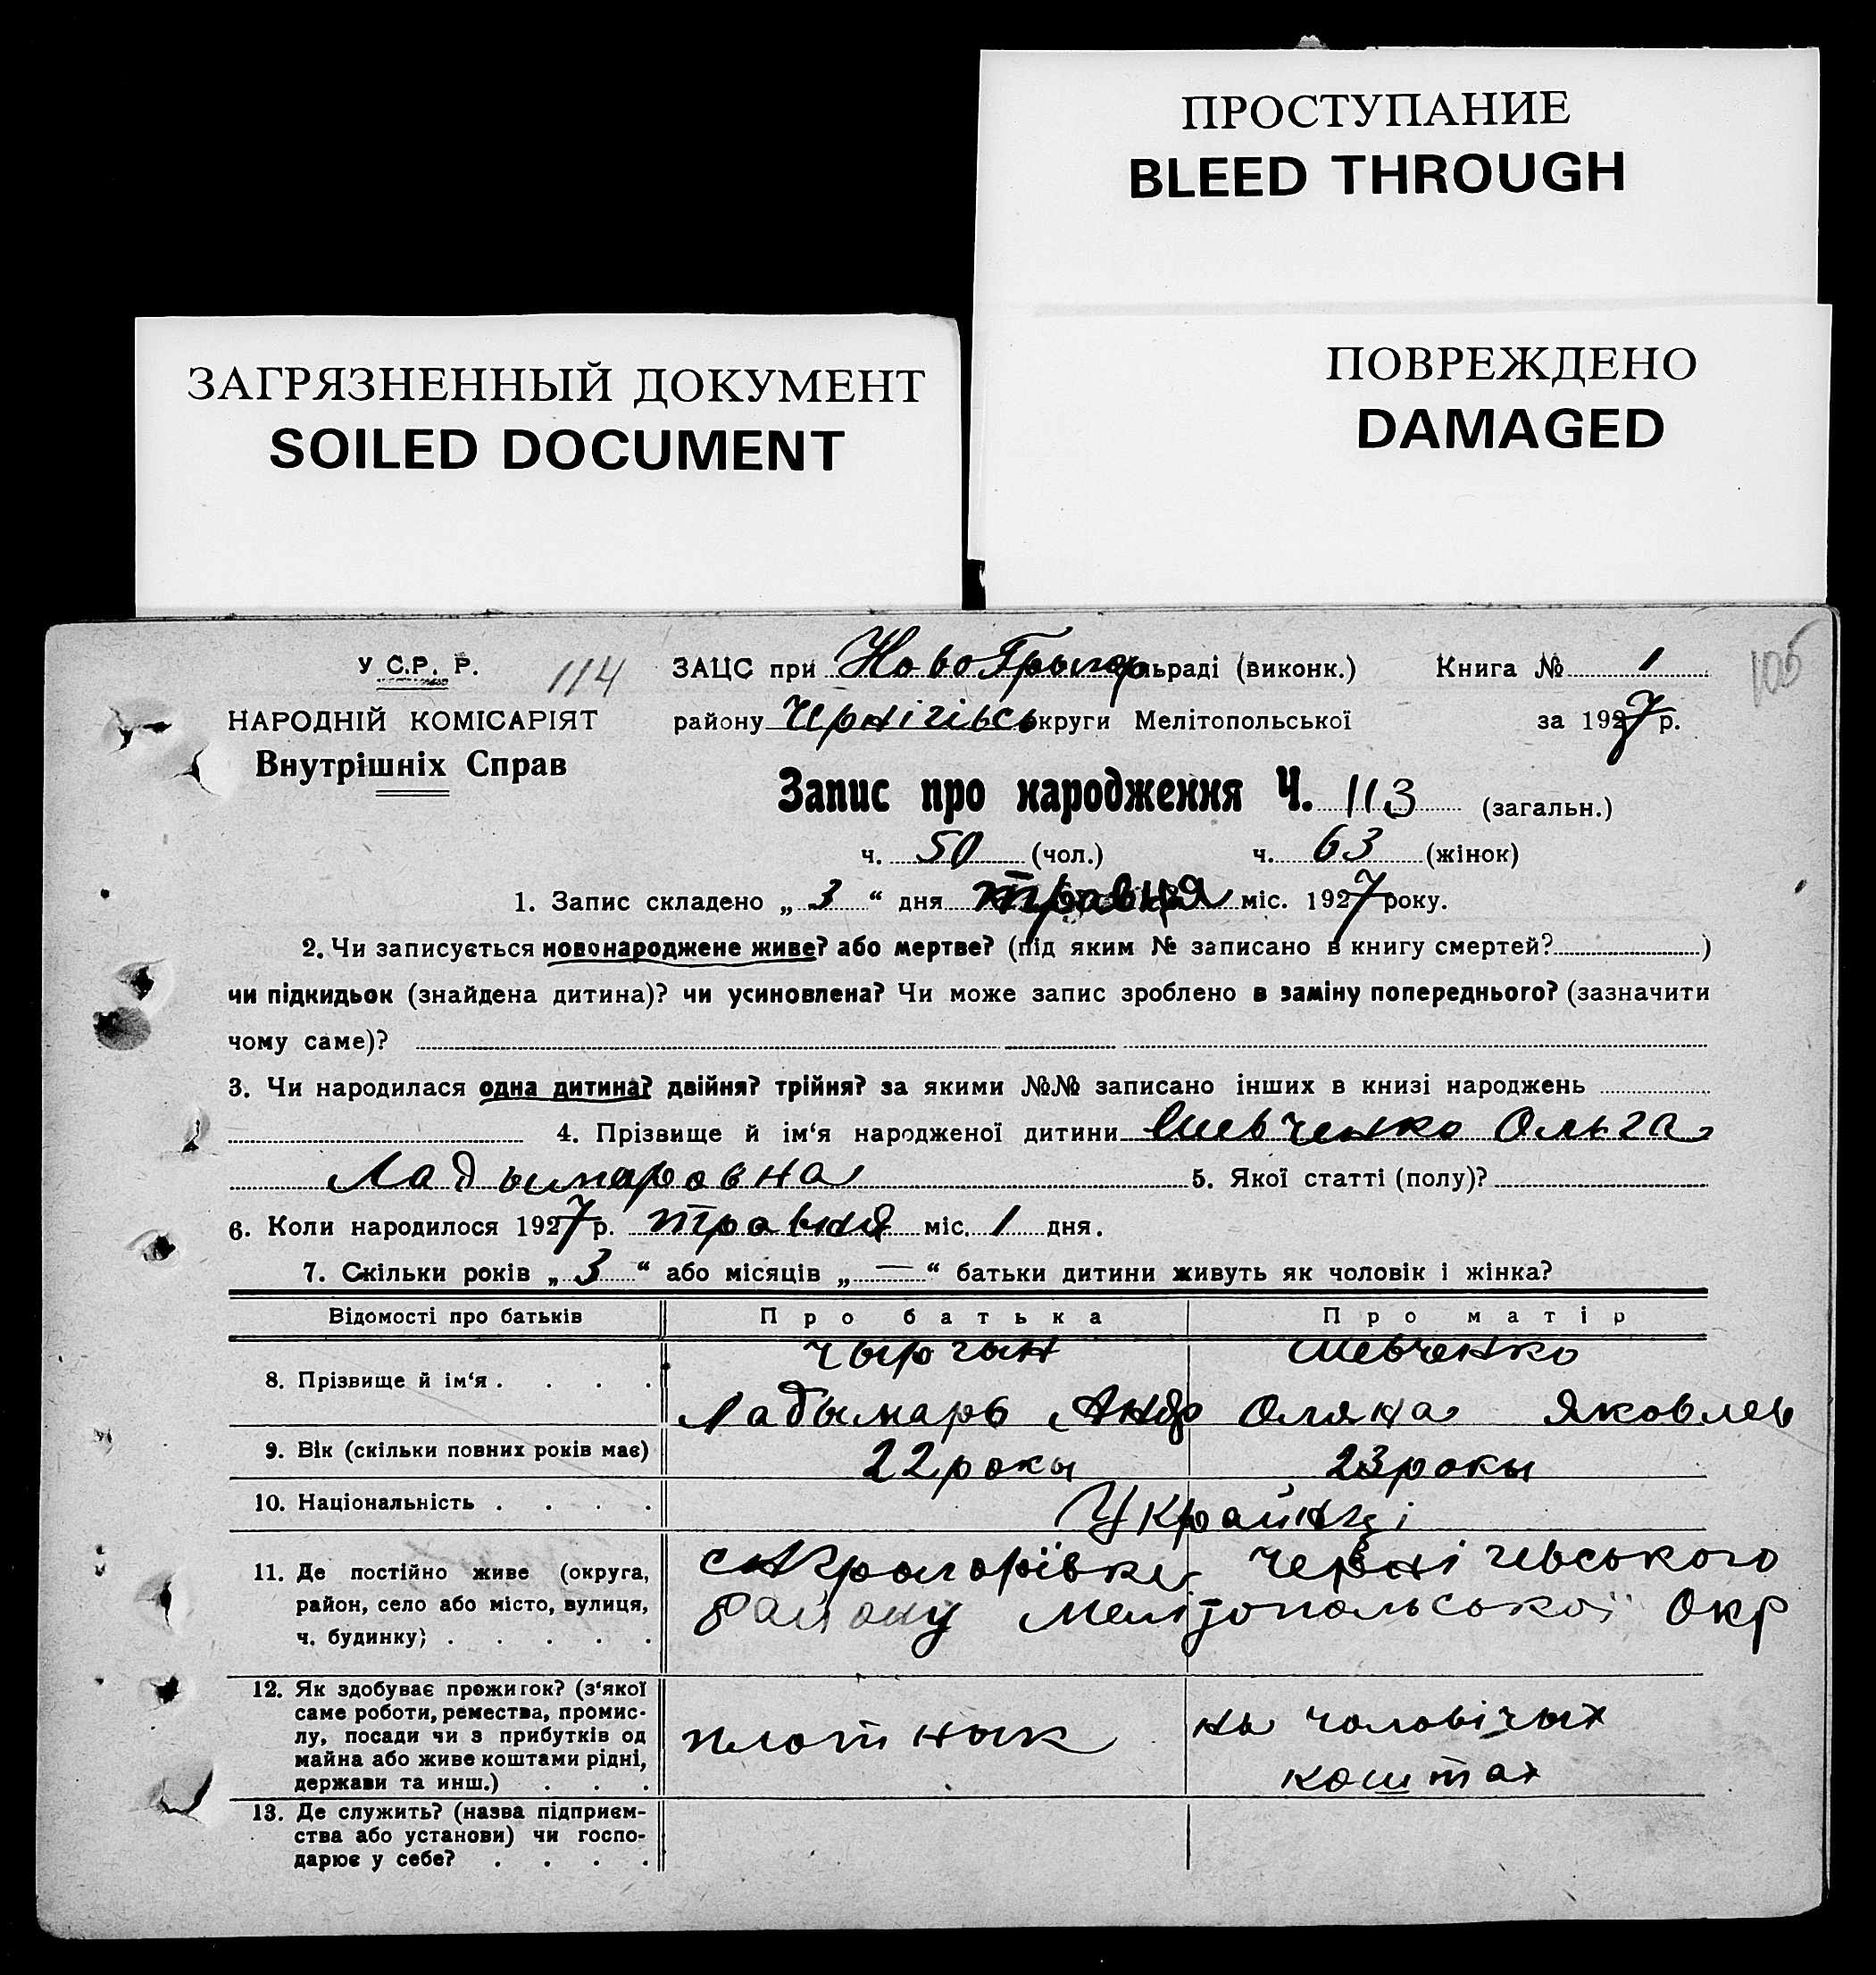 ПРОСТУПАНИЕ
BLEED THROUGH
ЗАГРЯЗНЕННЫЙ ДОКУМЕНТ
SOILED DOCUMENT
ПОВРЕЖДЕНО
DAMAGED
У С.Р. Р. 114 ЗАЦС при НовоГрыгор льраді (виконк.) Книга № 1 105
НАРОДНІЙ КОМІСАРІЯТ району Чернігівсь округи Мелітопольської за 1927 р.
Внутрішніх Справ
Запис про народження Ч. 113 (загальн.)
ч. 50 (чол.) ч. 63 (жінок)
1. Запис складено „ 3 “ дня травня міс. 1927 року.
2. Чи записується новонароджене живе? або мертве? (під яким № записано в книгу смертей? )
чи підкидьок (знайдена дитина)? чи усиновлена? Чи може запис зроблено в заміну попереднього? (зазначити
чому саме)?
3. Чи народилася одна дитина? двійня? трійня? за якими №№ записано інших в книзі народжень
4. Прізвище й ім‘я народженої дитини Шевченко Ольга
Ладымаровна 5. Якої статті (полу)?
6. Коли народилося 1927 р. травня міс. 1 дня.
7. Скільки років „ 3 “ або місяців „ — “ батьки дитини живуть як чоловік і жінка?
Відомості про батьків Про батька Про матір
Чыргын Шевченко
8. Прізвище й ім‘я . . . .
Ладымарь Андр Оляна Яковлев
9. Вік (скільки повних років має) 22 рокы 23 рокы
10. Національність . . . . Украйнці
11. Де постійно живе (округа, Чернігівського
район, село або місто, вулиця, району Мелітопольської Окр
ч. будинку) . . . . .
12. Як здобуває прожиток? (з‘якої
саме роботи, ремества, промис-
лу, посади чи з прибутків од плотнык на чоловічых
майна або живе коштами рідні,
держави та инш.) . . . коштах
13. Де служить? (назва підприєм-
ства або установи) чи госпо-
дарює у себе? . . . .